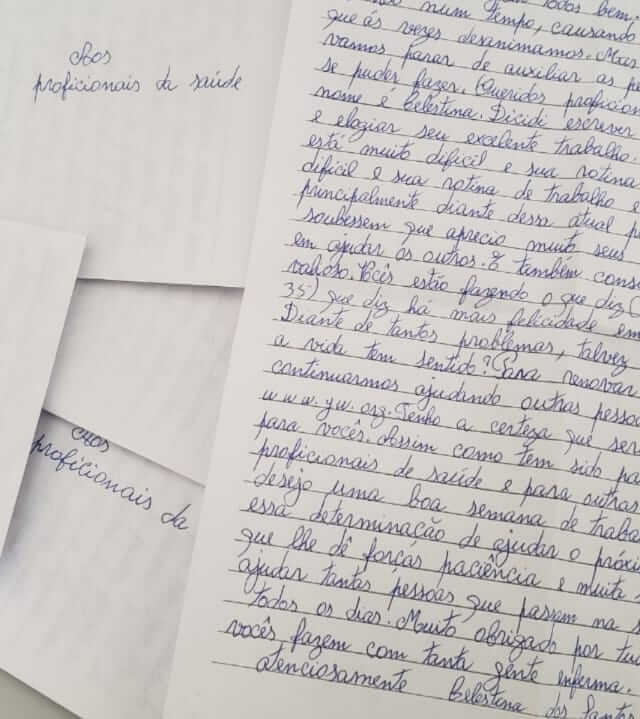 Aos
proficionais da saúde
todos bem.
num tempo, causando
que ás vezes desanimamos. Mas
vamos parar de auxiliar as pe
se puder fazer. Queridos proficion
nome é Celestina. Dicidi escrever
e elogiar seu excelente trabalho.
está muito dificil e sua rotina
dificil e sua rotina de trabalho e
principalmente diante dessa atual p
soubessem que aprecio muito seus
em ajudar os outros. E também cons
valioso. Vcês estão fazendo o que diz (
35) que diz há mais felicidade em
Diante de tantos problemas, talvez
a vida tem sentido? Para renovar
continuarmos ajudando outras pessoa
www.jw.org. Tenho a certeza que ser
para vocês. Assim como tem sido pa
proficionais de saúde e para outras
desejo uma boa semana de traba
essa determinação de ajudar o próxi
que lhe dê forças paciência e muita
ajudar tantas pessoas que passam na s
todos os dias. Muito obrigado por tu
vocês fazem com tanta gente enferma.
atenciosamente Celestina dos Santos
Aos
proficionais da